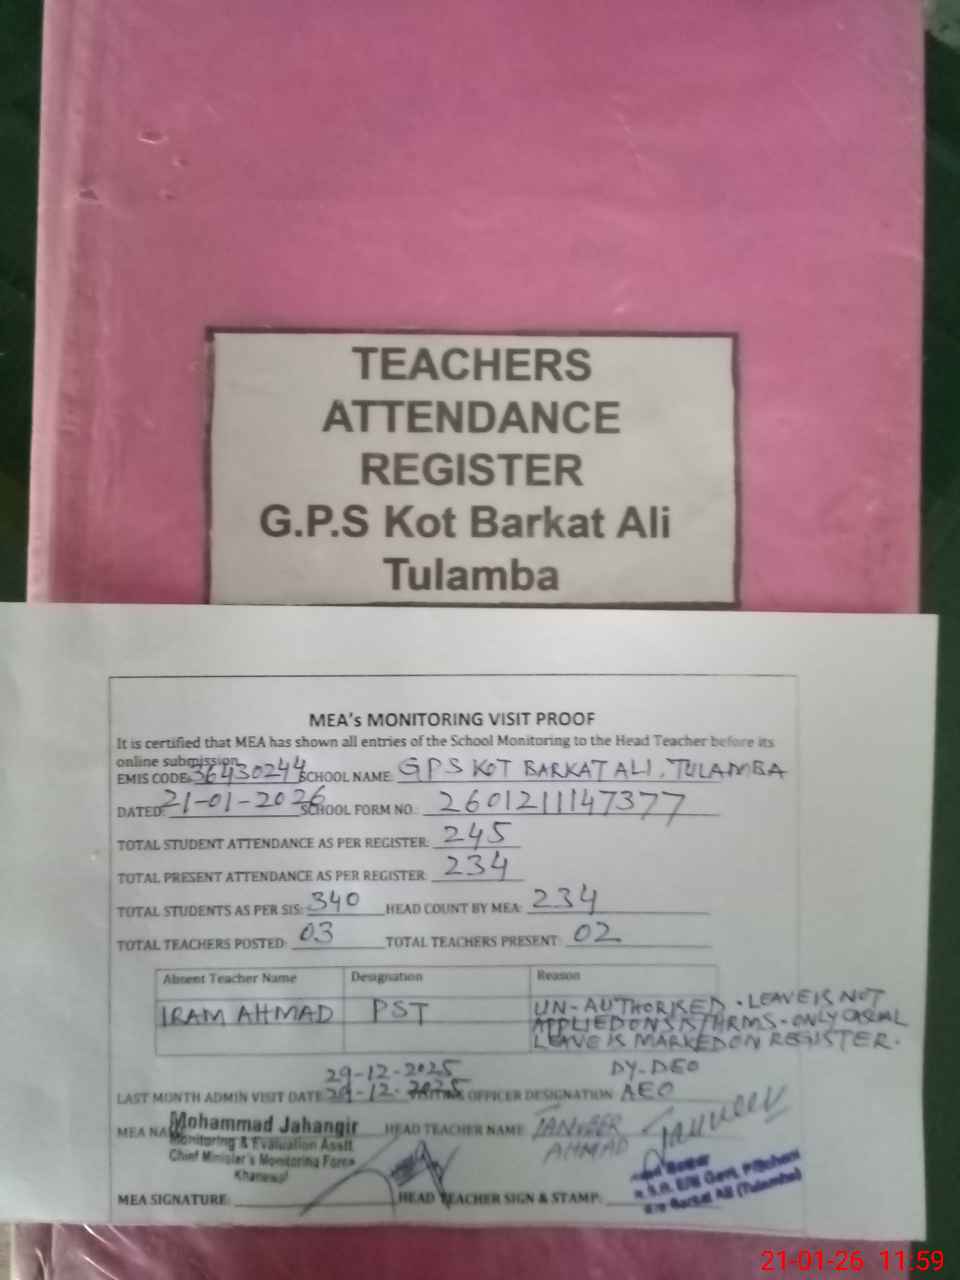 TEACHERS
ATTENDANCE
REGISTER
G.P.S Kot Barkat Ali
Tulamba
MEA's MONITORING VISIT PROOF
It is certified that MEA has shown all entries of the School Monitoring to the Head Teacher before its
online submission
EMIS CODE: 36430244 SCHOOL NAME: GPS KOT BARKAT ALI, TULAMBA
DATED: 21-01-2026 SCHOOL FORM NO.: 2601211147377
TOTAL STUDENT ATTENDANCE AS PER REGISTER: 245
TOTAL PRESENT ATTENDANCE AS PER REGISTER: 234
TOTAL STUDENTS AS PER SIS: 340 HEAD COUNT BY MEA: 234
TOTAL TEACHERS POSTED: 03 TOTAL TEACHERS PRESENT: 02
Absent Teacher Name Designation Reason
IRAM AHMAD PST UN-AUTHORISED. LEAVE IS NOT
APPLIED ON SIS/HRMS. ONLY CASUAL
LEAVE IS MARKED ON REGISTER.
29-12-2025 DY-DEO
LAST MONTH ADMIN VISIT DATE 29-12-2025 VISITING OFFICER DESIGNATION AEO
MEA NAME Mohammad Jahangir HEAD TEACHER NAME TANVEER
AHMAD Tanveer
Monitoring & Evaluation Asstt.
Chief Minister's Monitoring Force
Khanewal
MEA SIGNATURE: HEAD TEACHER SIGN & STAMP:
Govt.
Barkat Ali (Tulamba)
21-01-26 11:59